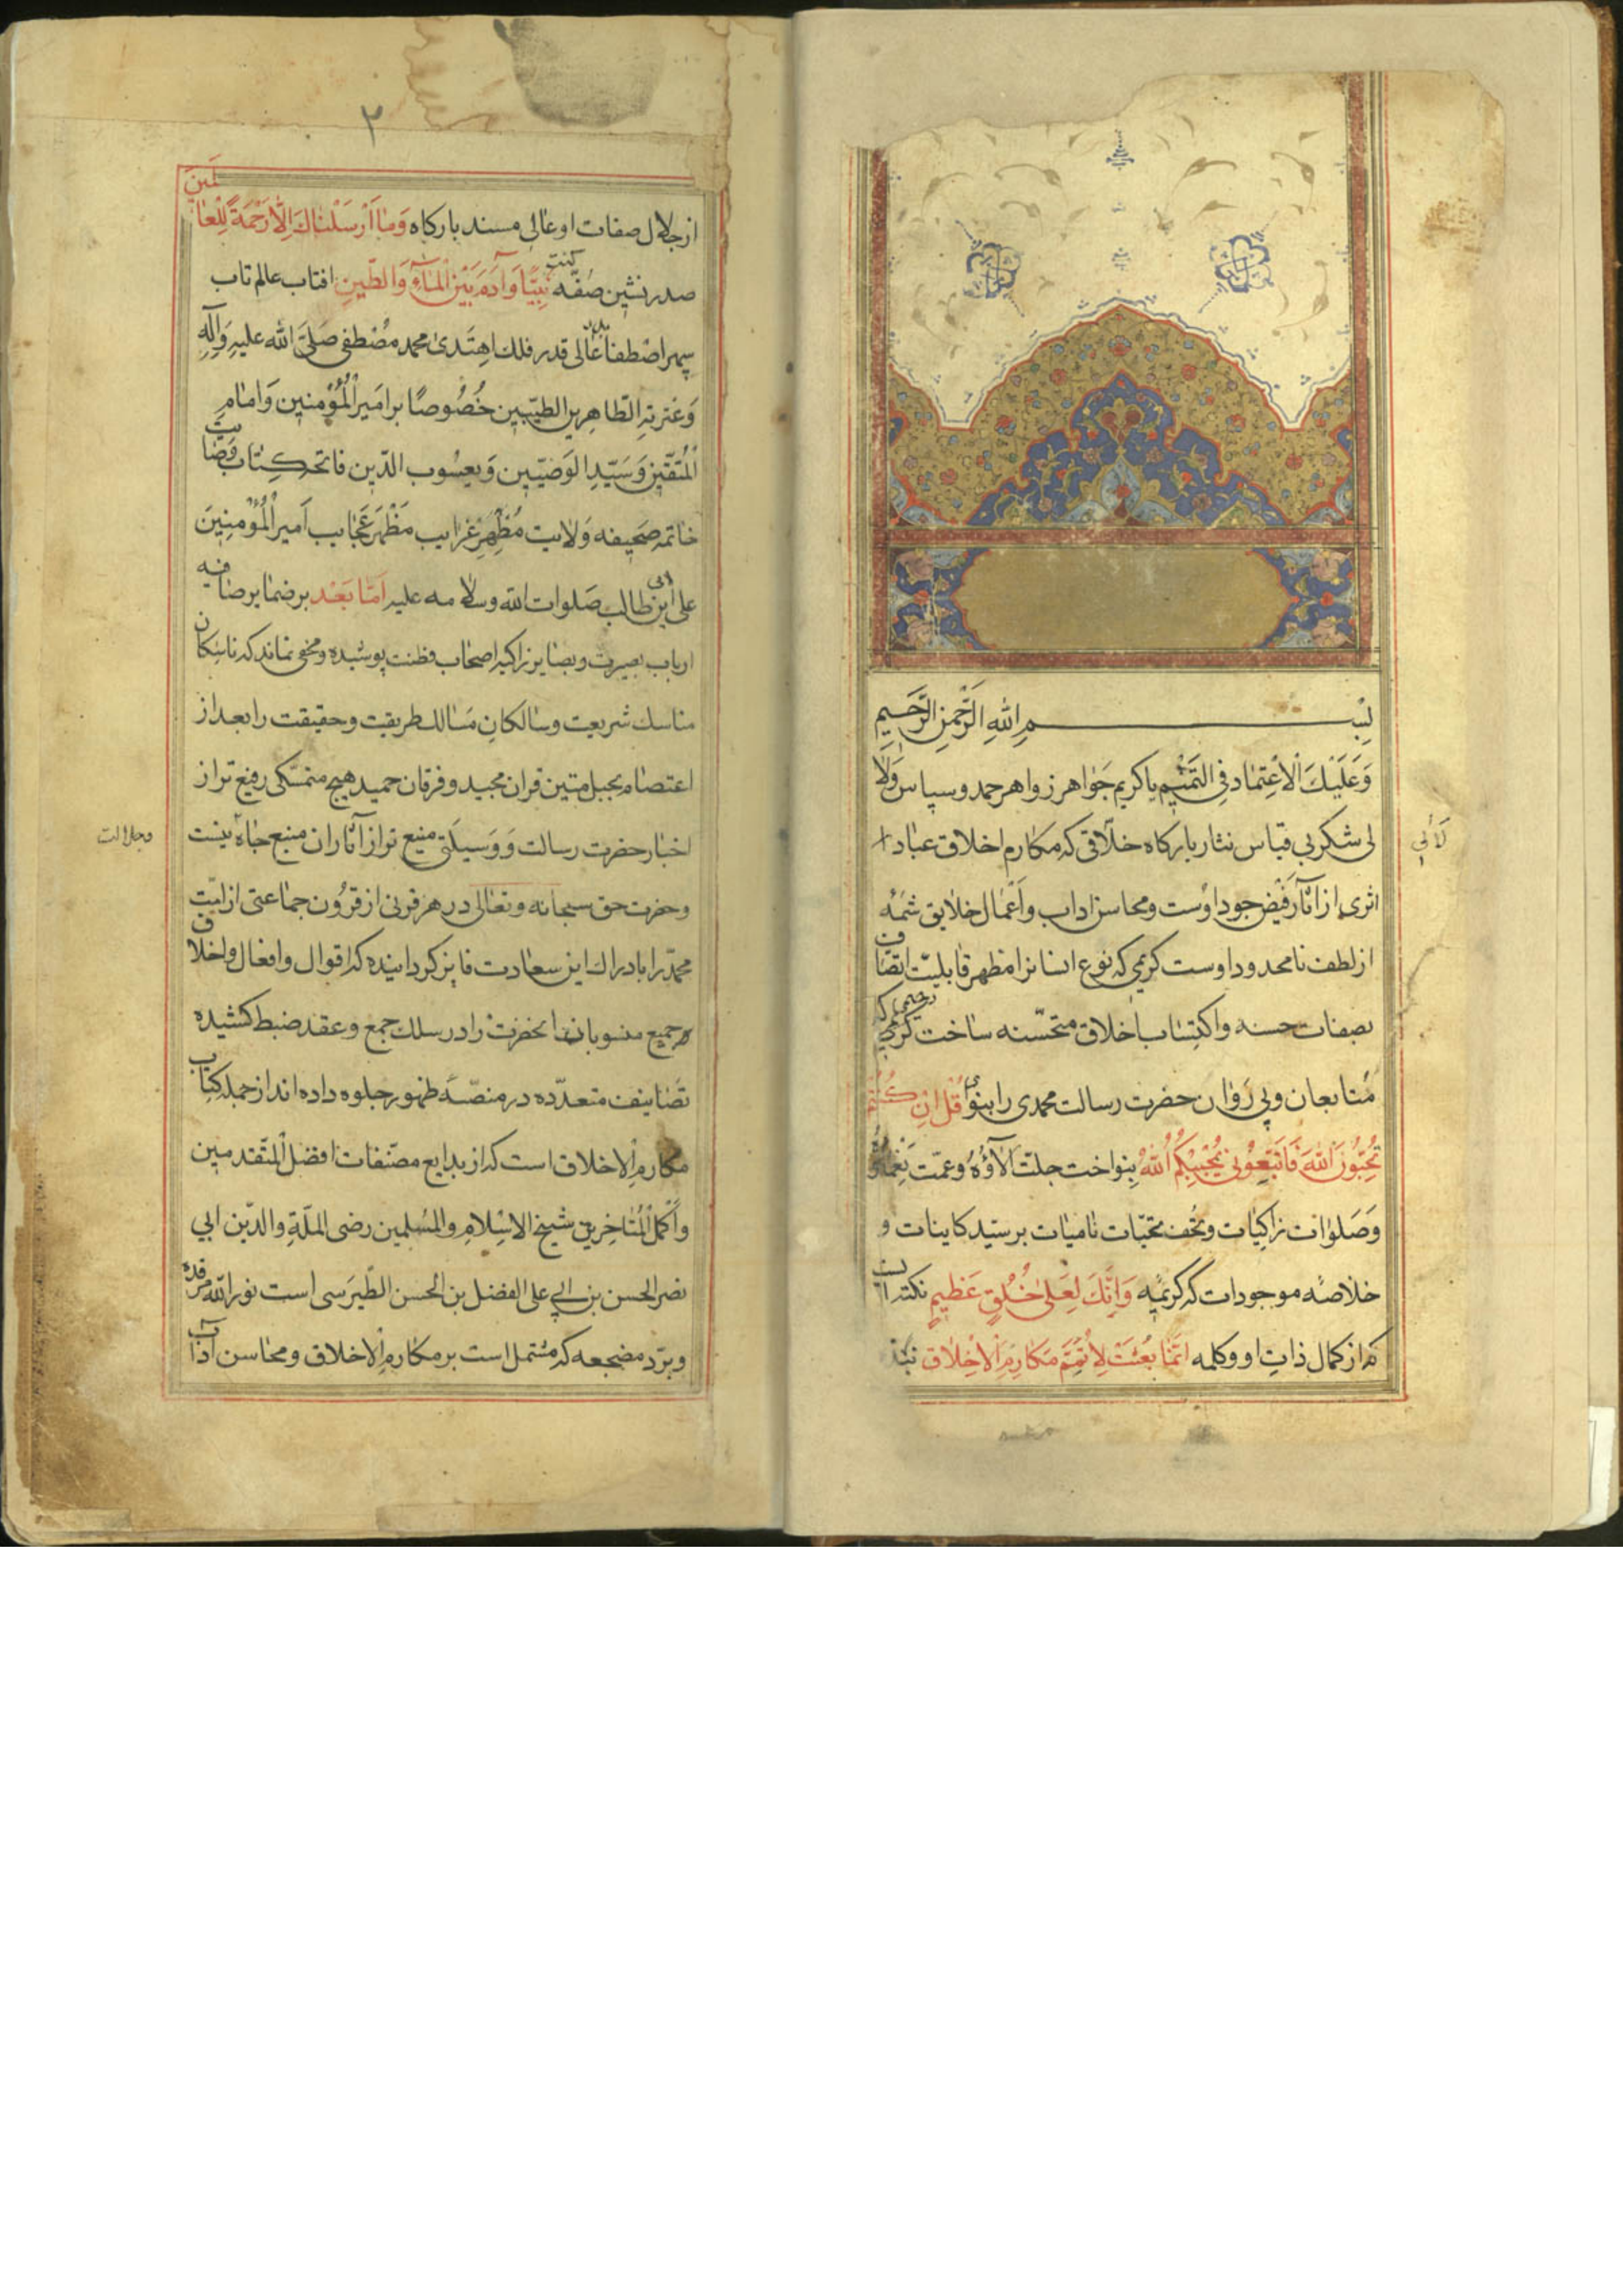 بسم الله الرحمن الرحیم
وَعَلَیْکَ الْاعْتِمٰاد فِی التَّتْمیم یا کریم جَوٰاهر زواهر حمد وسپاس وَلَاٰ
لی شکر بی قیاس نثار بارکاه خلّاقی که مکارم اخلاق عباد
لاٰلی
اثری از اٰثار فَیْض جود اوست ومحاسن اداب واَعْمٰال خلایق شمّهٔ
از لطف نامحدود اوست کریمی که نوع انسانرا مظهر قابلیّت اتّصاف
بصفات حسنه واکتِسٰاب اخلاق متحسّنه سٰاخت رحیمی که
مُتابعان وپی رَوٰان حضرت رسالت محمدی را بنوٰای قُلْ اِنْ کُنْتُمْ
تُحِبُّونَ اللّٰهَ فَاتَّبِعُونی یُحْبِبْکُمُ اللّٰهُ بِنواخت جلّت اٰلآؤُهُ وعمّت نِعْمٰاؤُهُ
وَصَلَوٰات زاکیٰات وتُحَف تحیّات نامیٰات بر سیّد کاینات و
خلاصهٔ موجودات که کریمهٔ وَاِنَّکَ لَعَلیٰ خُلُقٍ عَظیمٍ نکته ایست
که از کمال ذاتِ او وکلمه اِنَّمٰا بُعِثْتُ لِاُتَمِّمَ مَکٰارِمَ الْاَخْلٰاق
۲
از جلال صفات او عٰالی مسند بارکاه وَمٰا اَرْسَلْنٰاکَ اِلّٰا رَحْمَةً لِلْعٰالَمینَ
صدر نشین صُفّه کنت نَبِیّاً وَاٰدَمُ بَیْنَ الْمٰآءِ وَالطّینِ افتاب عالم تاب
سپهر اصْطفا عٰالی قدر فلک اهتدیٰ محمد مصْطفی صَلَّی اللّٰه علیهِ وَاٰلِهِ
وَعترتهِ الطّاهِرین الطیّبین خُصُوصًا بر امَیر الْمُؤْمنین وَامٰامِ
الْمُتَّقین وَسَیّدِ الوَصیّین وَیعسُوب الدّین فاتحه کتاب وصٰایت
خٰاتمه صَحیفه وَلایت مُظْهِرِ غرٰایب مَظْهَرِ عَجٰایب اَمیر الْمُؤْمِنینَ
علی ابن ابی طالب صَلوات اللّه وسلامه علیه اَمّا بَعْد بر ضمایر صٰافیه
ارباب بصیرت وبصٰایر زاکیه اصحٰاب فطنت پوشیده ومخفی نماند که ناسِکان
مناسک شریعت وسٰالکان مَسٰالک طریقت وحقیقت را بعد از
اعتصام بحبل متین قران مجید وفرقان حمید هیچ متمسّکی رفیع تر از
اخبار حضرت رسالت وَوَسیلَتی منیع تر از اٰثار ان منبع جٰاه نیست
وجلالت
وحضرت حق سبحانه وتعٰالی در هر قرنی از قرُون جمٰاعتی از امّت
محمّد را بادراک این سعٰادت فایز کردانیده که اقوال وافعال واخلاق
جمیع منسوبان انحضرت را در سلک جمع وعقد ضبط کشیده
تصٰانیف متعدّده در منصّهٔ ظهور جلوه داده اند از جمله کتاب
مکارم الاخلاق است که از بدایع مصنّفات افضل المتقدمین
واکْمَل الْمُتاخِرین شیخ الاسْلامِ والمُسلمین رضی الملّةِ والدّین ابی
نصر الحسن بن ابی علی الفضل بن الحسن الطّبرَسی است نور اللّٰه مرقده
وبرّد مضجعه که مشتمل است بر مکٰارم الاخلاق ومحٰاسن اٰداب